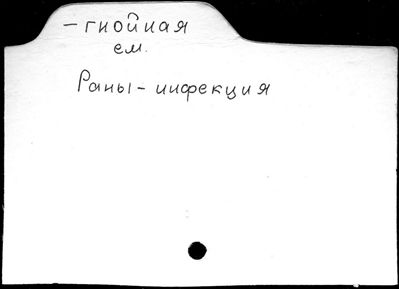 - гнойная
см.
Раны - инфекция